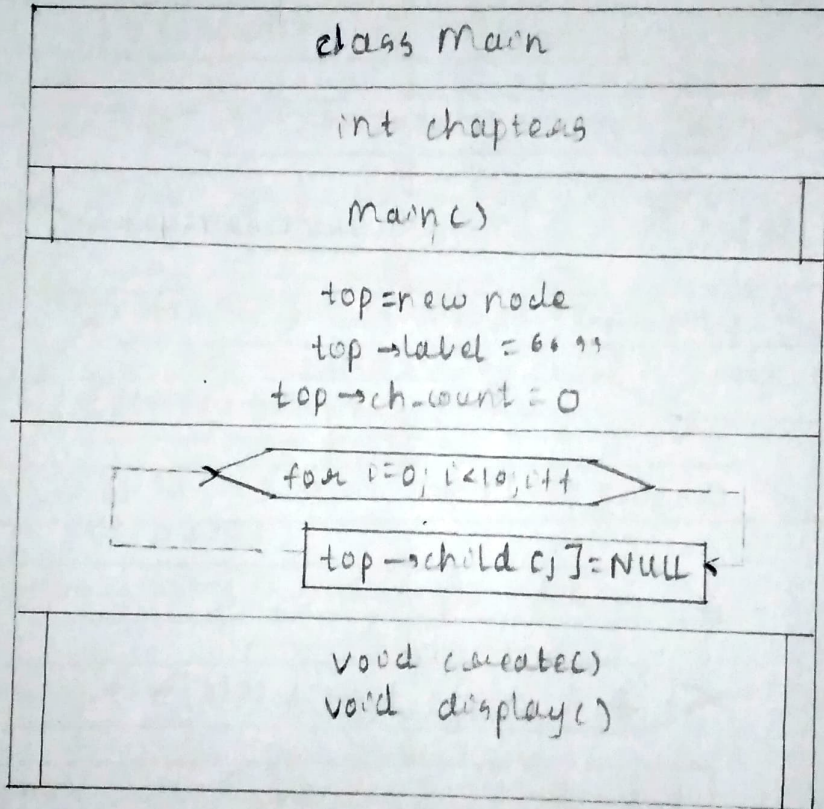 class Main
int chapters
Main()
top=new node
top→label = “ ”
top→ch_count = 0
for i=0; i<10; i++
top→child[j]=NULL
void create()
void display()